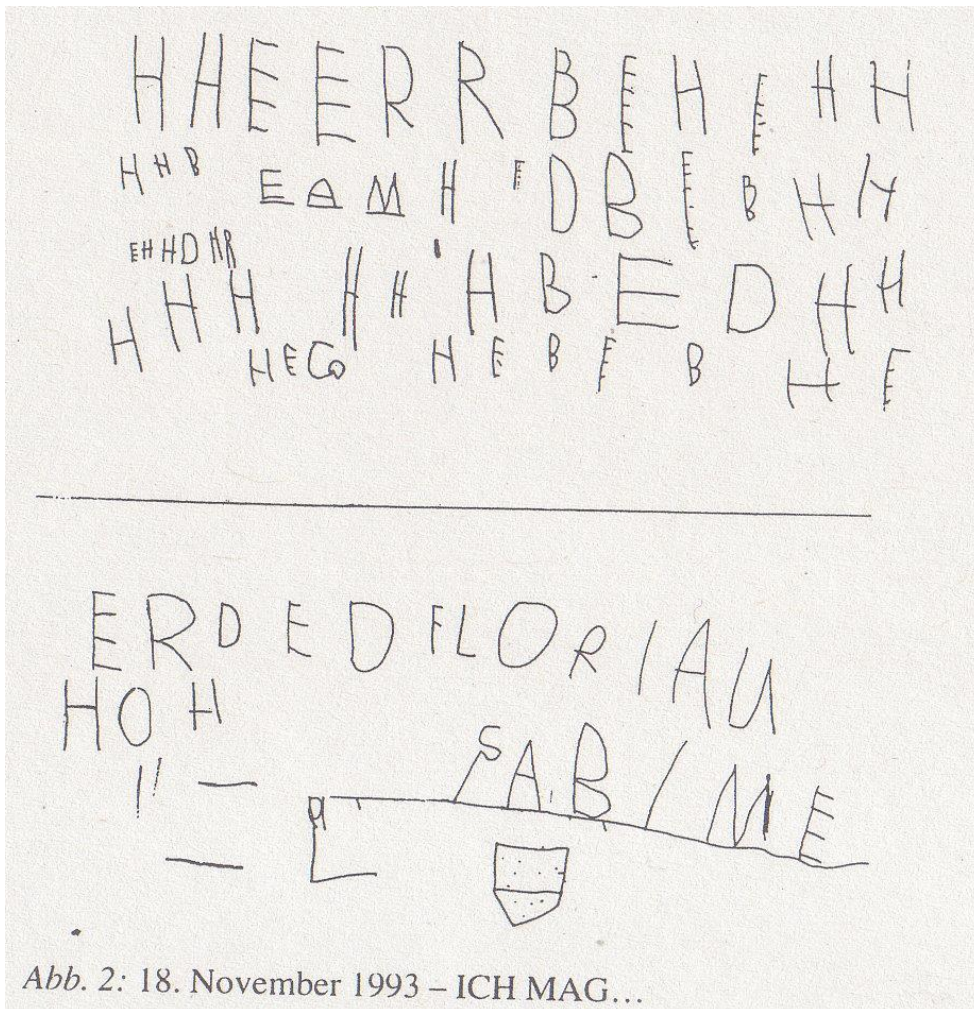 H H E E R R B E H E H H
H H B E A M H E D B E B H H
E H H D H R
H H H H H H B E D H H
H E C O H E B E B H E
E R D E D F L O R I A U
H O H
S A B I M E
Abb. 2: 18. November 1993 – ICH MAG...